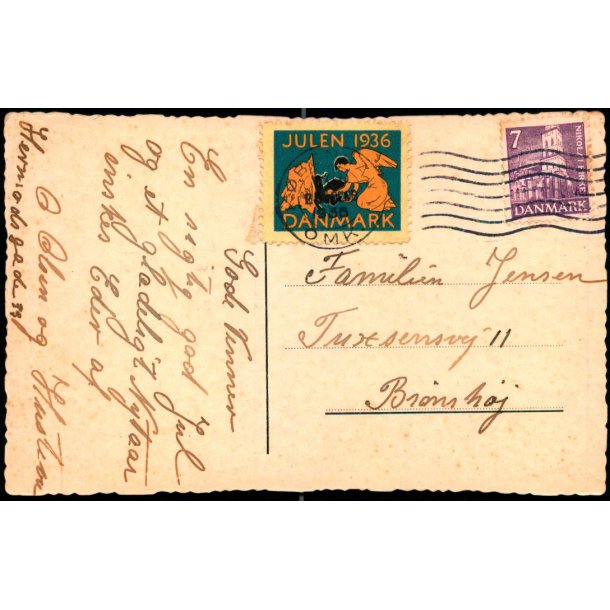 JULEN 1936
DANMARK
KØB
OMK
7
NIKOLAJ
DANMARK
Familien Jensen
Tuxsensvej 11
Brønshøj
Gode Venner
En rigtig god Jul
og et glædeligt Nytaar
ønskes Eder af
O Olsen og Hustru